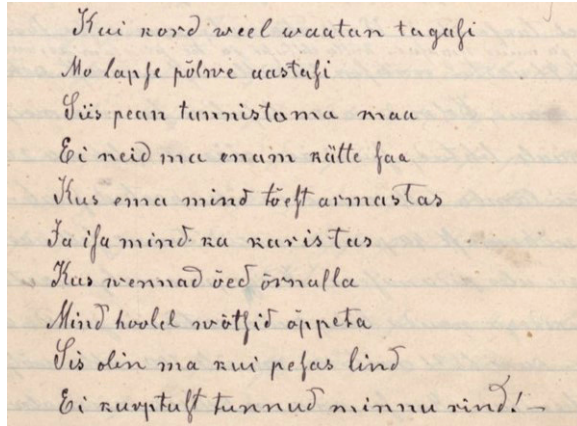 Kui kord weel waatan tagasi
Mo lapse põlwe aastasi
Siis pean tunnistama maa
Ei neid ma enam kätte saa
Kus ema mind tõest armastas
Ja isa mind ka karistas
Kus wennad õed õrnalla
Mind hoolel wõtsid õppeta
Sis olin ma kui pesas lind
Ei kurptust tunnud minnu rind! —